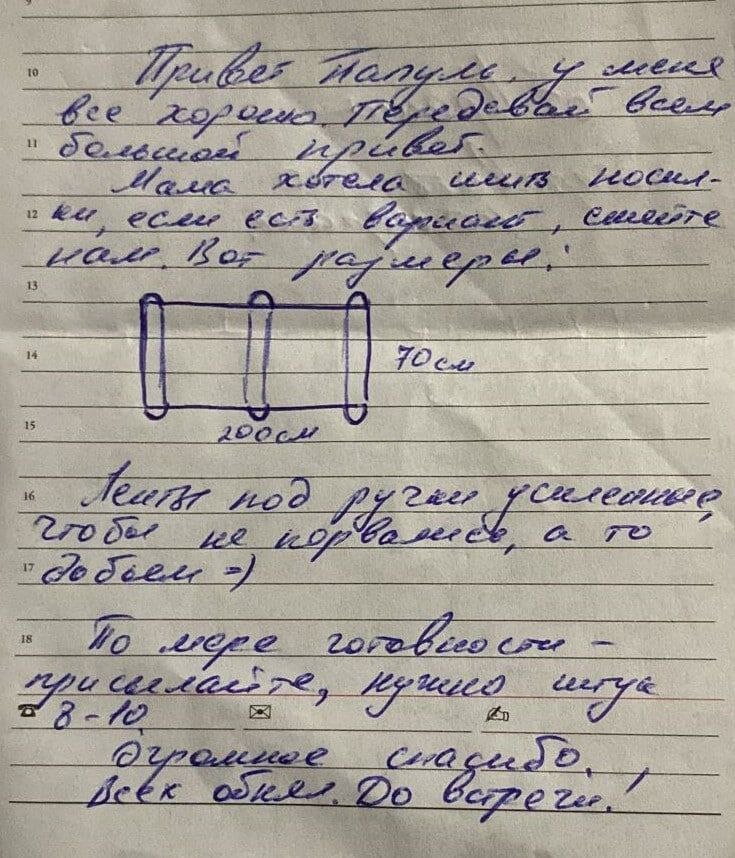 9
10 Привет Папуль, у меня
все хорошо. Передавай всем
11 большой привет.
Мама хотела шить носил-
12 ки, если есть вариант, сшейте
нам. Вот размеры:
13
14 70 см
15 200 см
16 Ленты под ручки усиленные,
чтобы не порвались, а то
17 добьем =)
18 По мере готовности –
присылайте, нужно штук
8-10
Огромное спасибо.
Всех обнял. До встречи!